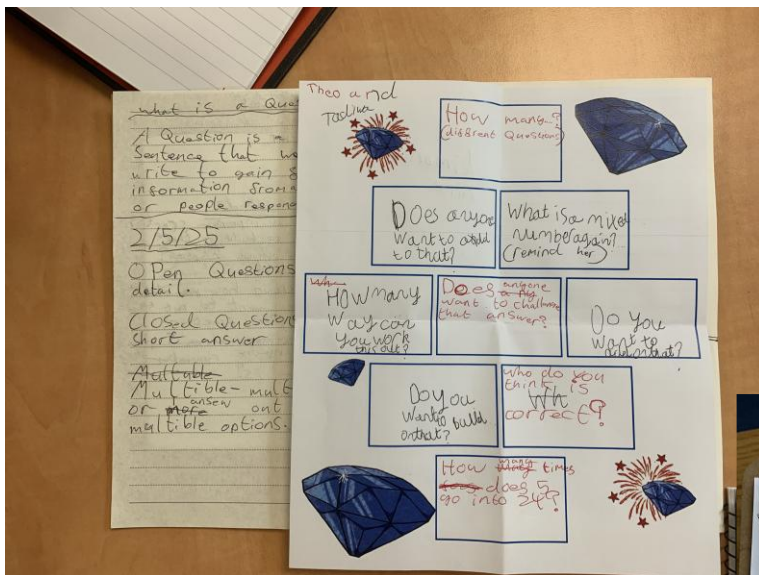 what is a Ques
A Question is a
Sentence that we
write to gain
information from a
or people respon
2/5/25
OPen Questions
detail.
Closed Question
short answer
Multuble
Multible- mult
or more answ out
multible options.
Theo and
How many?
(different Questions)
DOes anyone
Want to add
to that?
What is a mixed
number again?
(remind her)
HOw many
Way can
you work
this out?
Does anyone
want to challenge
that answer?
Do You
Want to
on that?
Do you
Want to build
on that?
who do you
think is
Wh
correct?
How many times
does 5
go into 24?